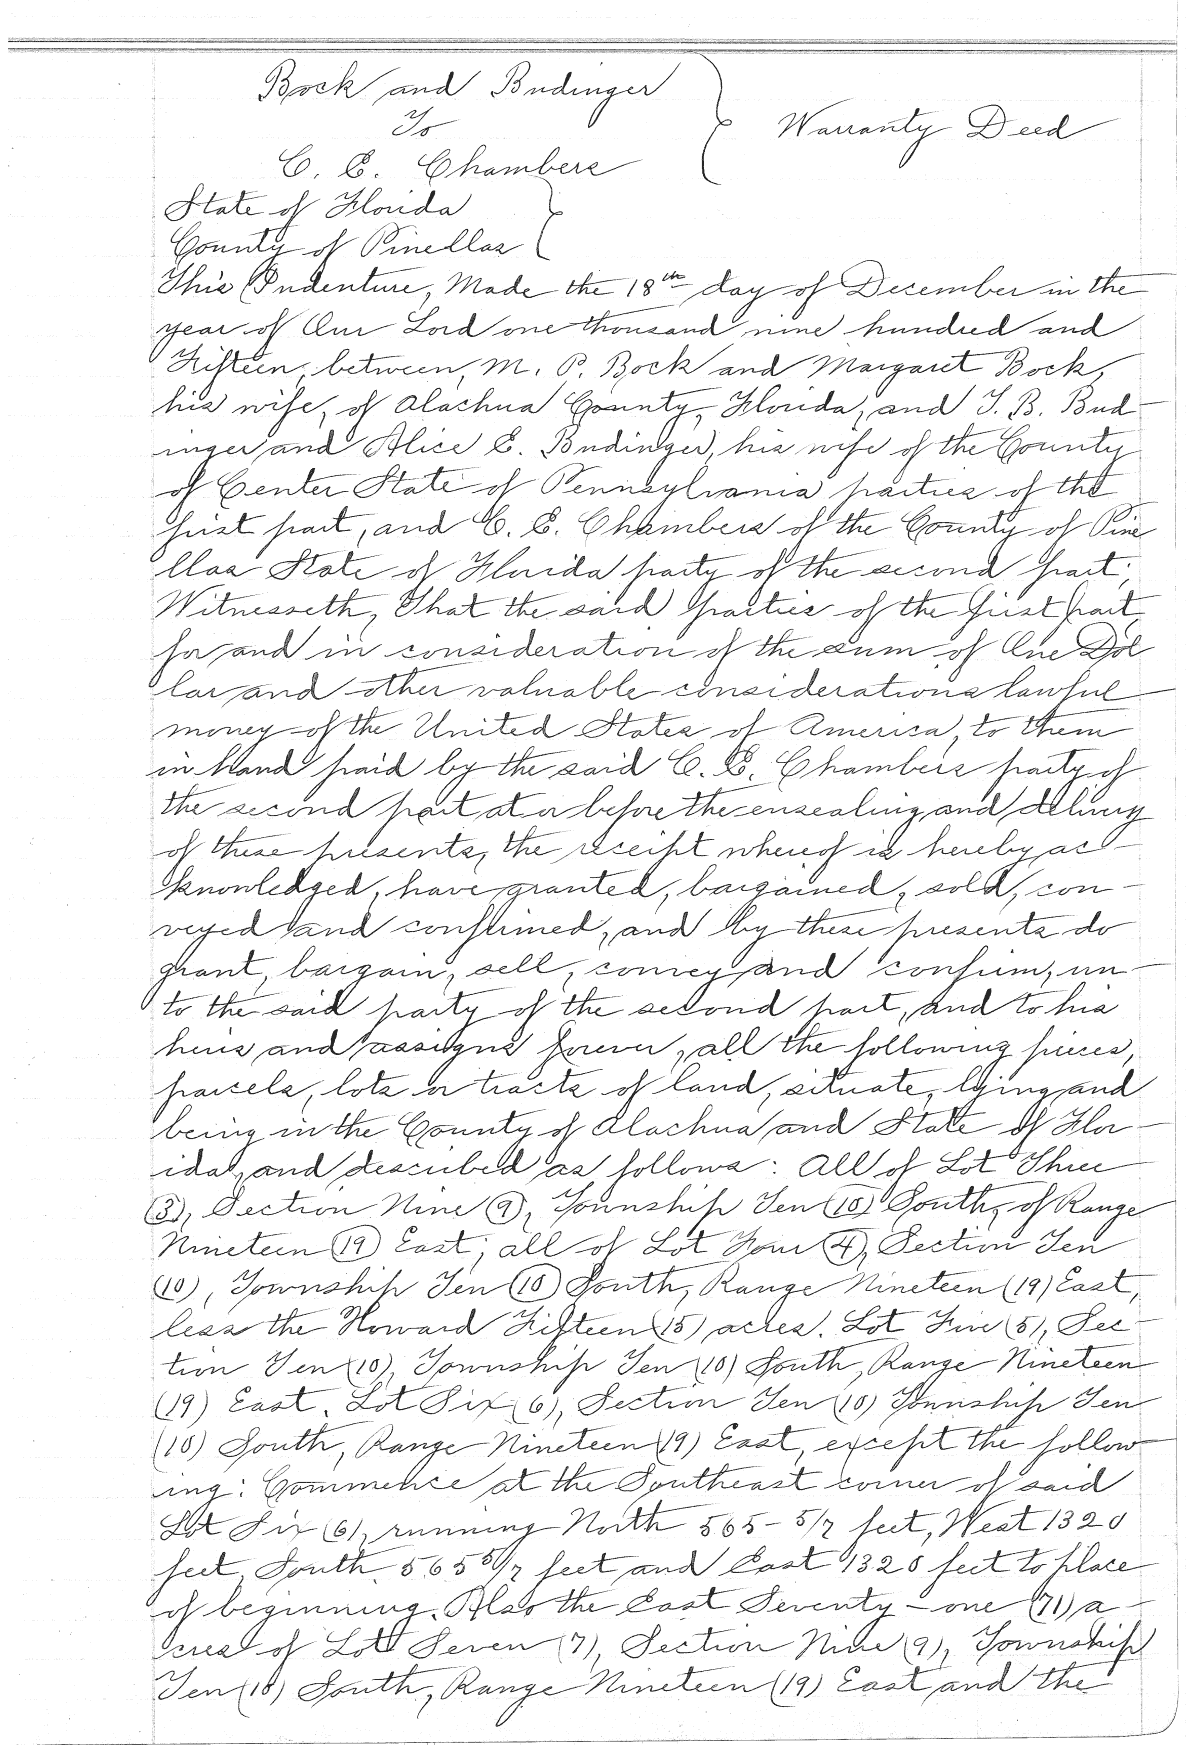 Bock and Budinger
To
Warranty Deed
C. E. Chambers
State of Florida
County of Pinellas
This Indenture, Made the 18th day of December in the
year of Our Lord one thousand nine hundred and
Fifteen, between, M. P. Bock and Margaret Bock,
his wife, of Alachua County, Florida, and T. B. Bud-
inger and Alice E. Budinger, his wife of the County
of Center State of Pennsylvania parties of the
first part, and C. E. Chambers of the County of Pine
llas State of Florida party of the second part;
Witnesseth, That the said parties of the first part
for and in consideration of the sum of One Dol
lar and other valuable considerations lawful
money of the United States of America, to them
in hand paid by the said C. E. Chambers party of
the second part at or before the ensealing and delivery
of these presents, the receipt whereof is hereby ac-
knowledged, have granted, bargained, sold, con-
veyed and confirmed, and by these presents do
grant, bargain, sell, convey and confirm, un-
to the said party of the second part, and to his
heirs and assigns forever, all the following pieces,
parcels, lots or tracts of land, situate, lying and
being in the County of Alachua and State of Flor-
ida, and described as follows: All of Lot Three
(3), Section Nine (9), Township Ten (10) South, of Range
Nineteen (19) East; all of Lot Four (4), Section Ten
(10), Township Ten (10) South, Range Nineteen (19) East,
less the Howard Fifteen (15) acres. Lot Five (5), Sec-
tion Ten (10), Township Ten (10) South, Range Nineteen
(19) East. Lot Six (6), Section Ten (10) Township Ten
(10) South, Range Nineteen (19) East, except the follow-
ing: Commence at the Southeast corner of said
Lot Six (6), running North 565-5/7 feet, West 1320
feet, South 565 5/7 feet and East 1320 feet to place
of beginning. Also the East Seventy-one (71) a-
cres of Lot Seven (7), Section Nine (9), Township
Ten (10) South, Range Nineteen (19) East and the